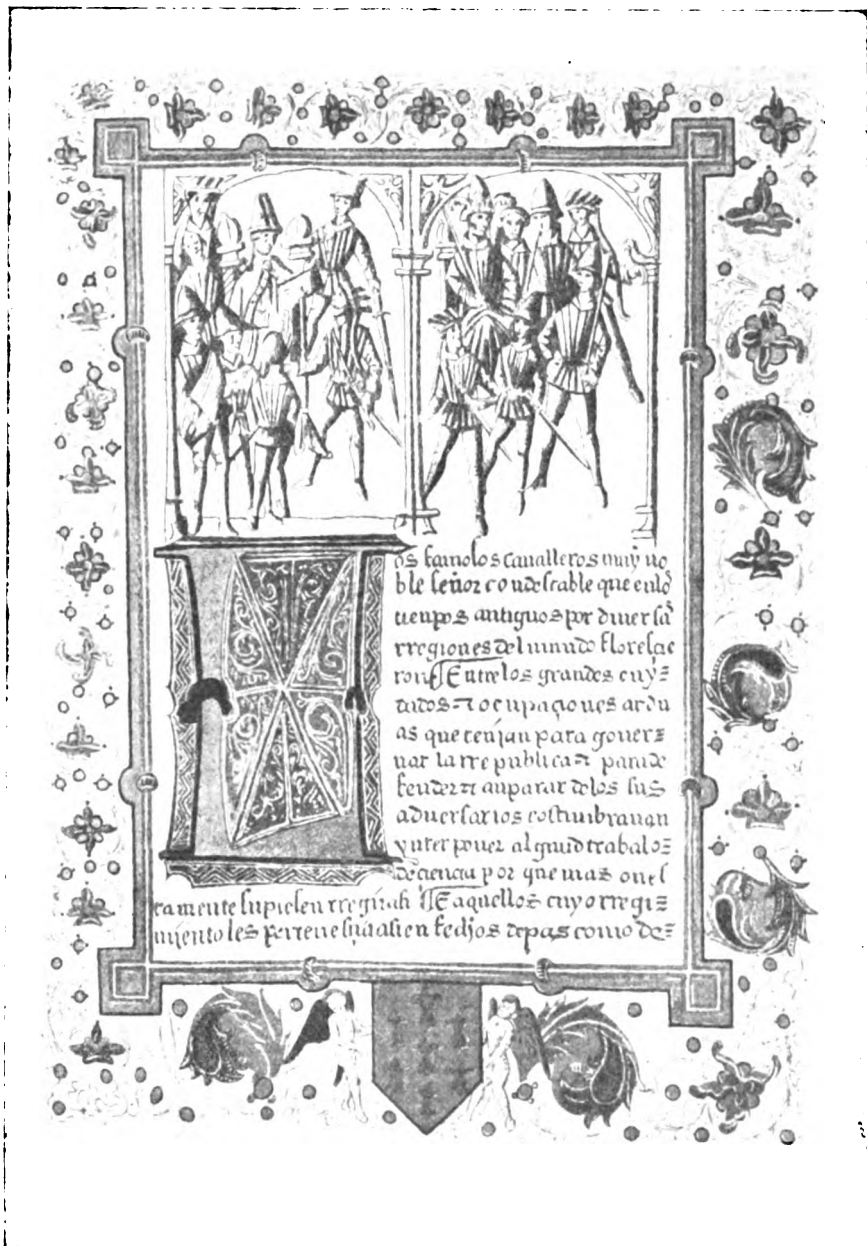 Los famosos caualleros muy no
ble señor condestable que en los
tienpos antiguos por diuersas
rregiones del mundo florescie
ron ¶ Entre los grandes cuy⸗
dados ⁊ ocupaçiones ardu
as que tenjan para gouer⸗
nar la rrepublica ⁊ para de
fender ⁊ anparar de los sus
aduersarios costunbrauan
ynterponer algund trabajo⸗
de ciencia por que mas ones
tamente supiesen rregir asi ¶ E a aquellos cuyo rregi⸗
mjento les pertenesçia asi en fechos de pas como de⸗